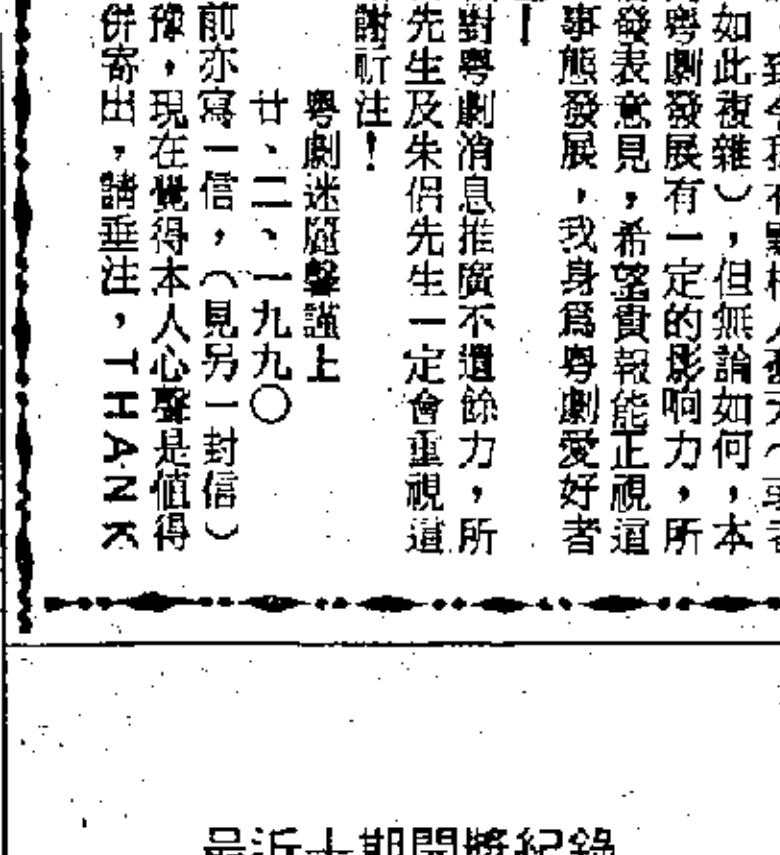 如此複雜），但無論如何，本
粵劇發展有一定的影响力，所
發表意見，希望貴報能正視這
事態發展，我身爲粵劇愛好者
對粵劇消息推廣不遺餘力，所
先生及朱侶先生一定會重視這
謝祈注！
粵劇迷 馨謹上
廿、二、一九九〇
前亦寫一信，（見另一封信）
豫，現在覺得本人心聲是值得
併寄出，請垂注，THANK
最近十期開獎紀錄